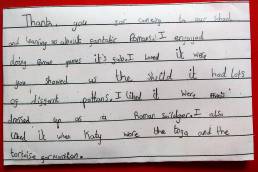 Thank, you for coming to our school
and learning us about fantastic Romans. I enjoyed
doing some games it's fab. I loved it were
you showed us the shield it had lots
of diffrent pattons. I liked it were
dressed up as a Roman soldger. I also
liked it when Katy wore the toga and the
tortoise formation.